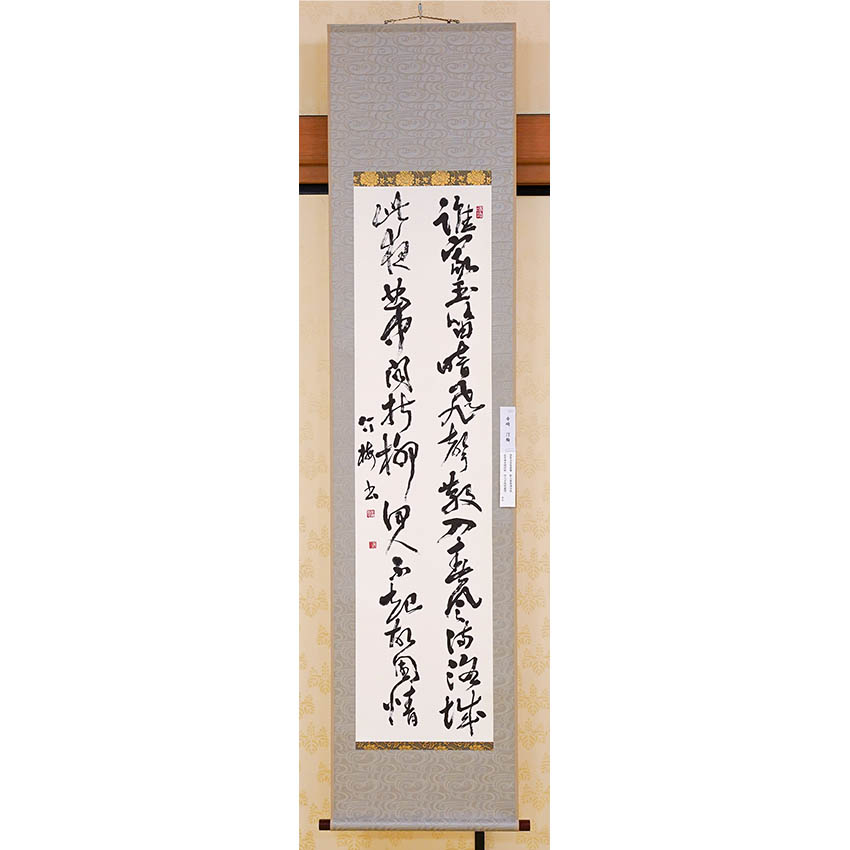 誰家玉笛暗飛聲散入春風満洛城
此夜曲中聞折柳何人不起故園情
竹梅書